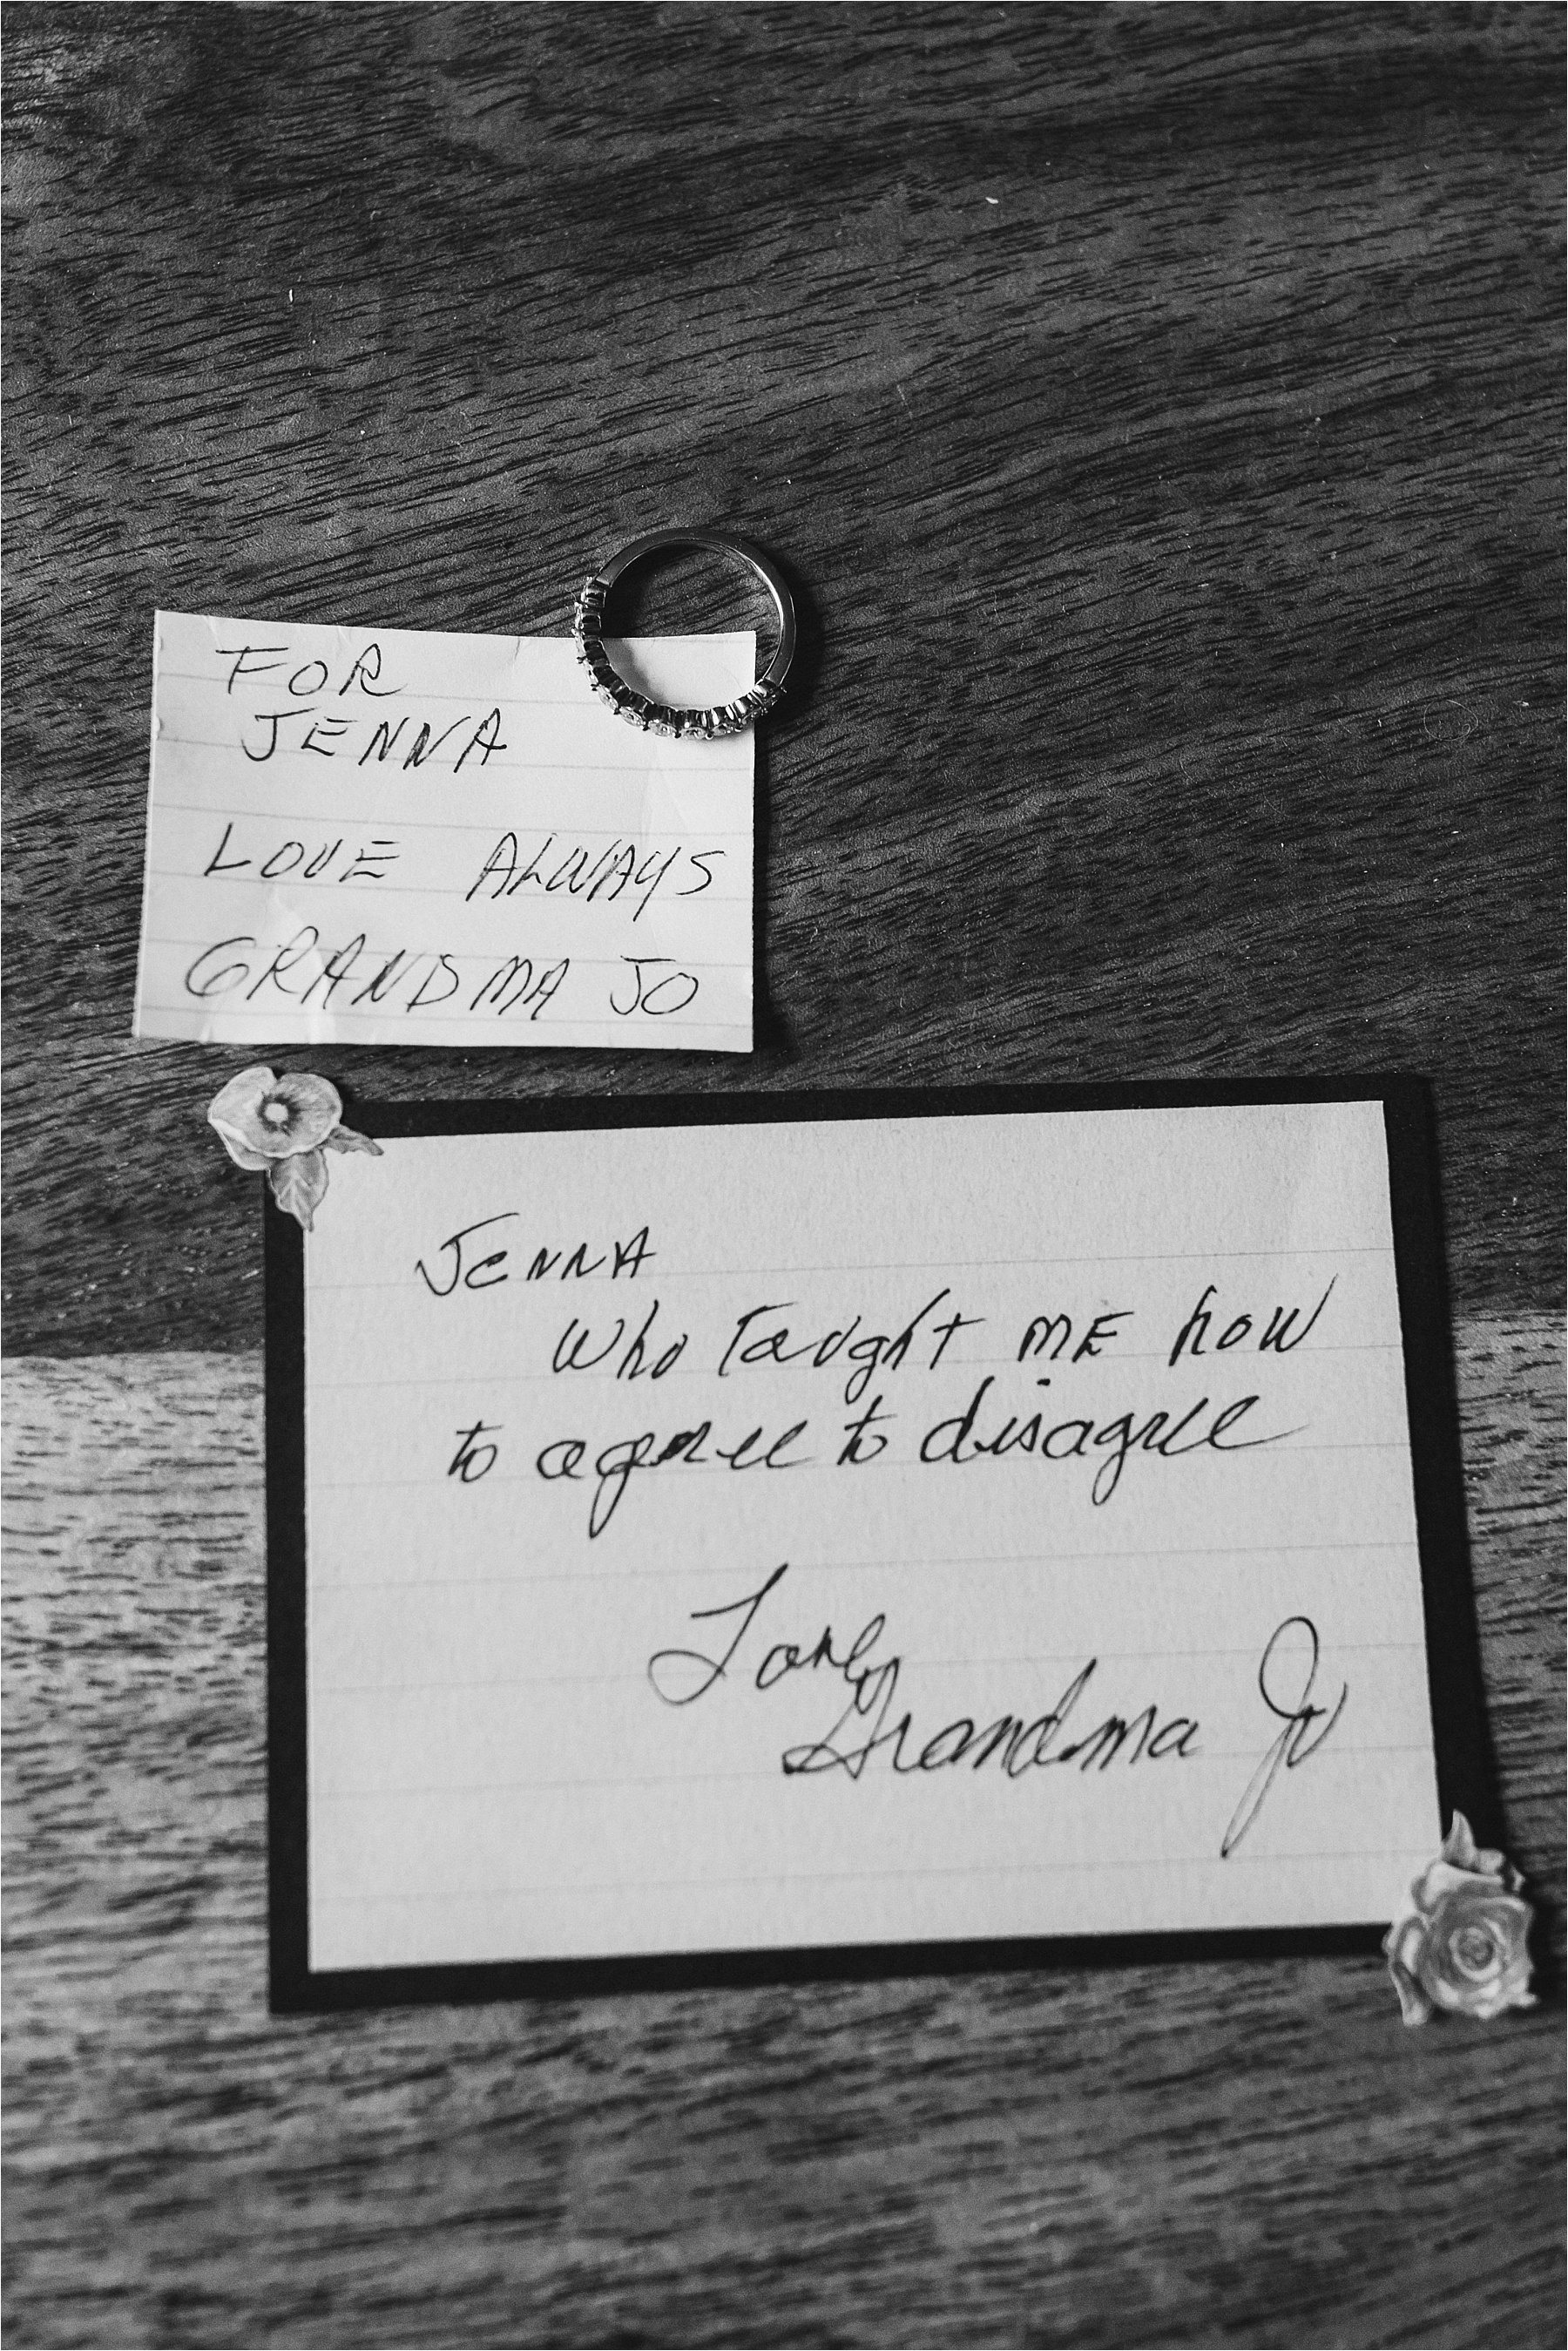 FOR
JENNA
LOVE ALWAYS
GRANDMA JO
JENNA
who taught ME how
to agree to disagree
Love
Grandma Jo